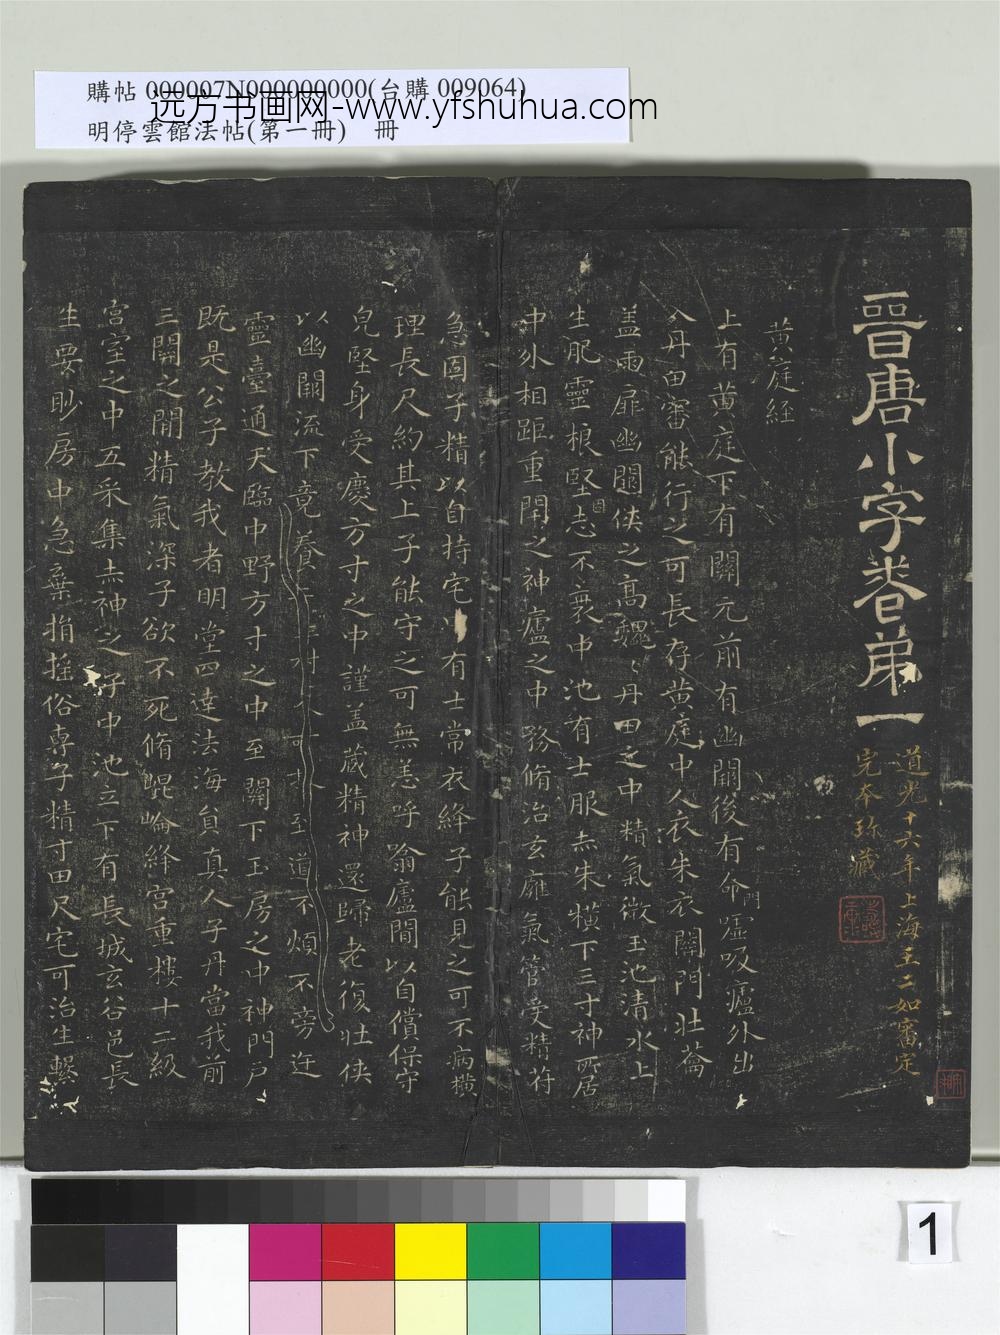 購帖 000007N000000000(台購 009064)
远方书画网-www.yfshuhua.com
明停雲館法帖(第一冊) 冊
晉唐小字卷弟一
道光十六年上海王二如審定
完本珍藏
黃庭經
上有黃庭下有關元前有幽闕後有命門噓吸廬外出
入丹田審能行之可長存黃庭中人衣朱衣關門壯蘥
蓋兩扉幽闕俠之高魏〻丹田之中精氣微玉池清水上
生肥靈根堅固志不衰中池有士服赤朱橫下三寸神所居
中外相距重閉之神廬之中務脩治玄癰氣管受精符
急固子精以自持宅中有士常衣絳子能見之可不病橫
理長尺約其上子能守之可無恙呼噏廬間以自償保守
皃堅身受慶方寸之中謹蓋藏精神還歸老復壯俠
以幽闕流下竟養至道不煩不旁迕
靈臺通天臨中野方寸之中至關下玉房之中神門戶
既是公子教我者明堂四達法海員真人子丹當我前
三關之間精氣深子欲不死脩崐崘絳宮重樓十二級
宮室之中五采集赤神之子中池立下有長城玄谷邑長
生要眇房中急棄捐搖俗專子精寸田尺宅可治生繫
1